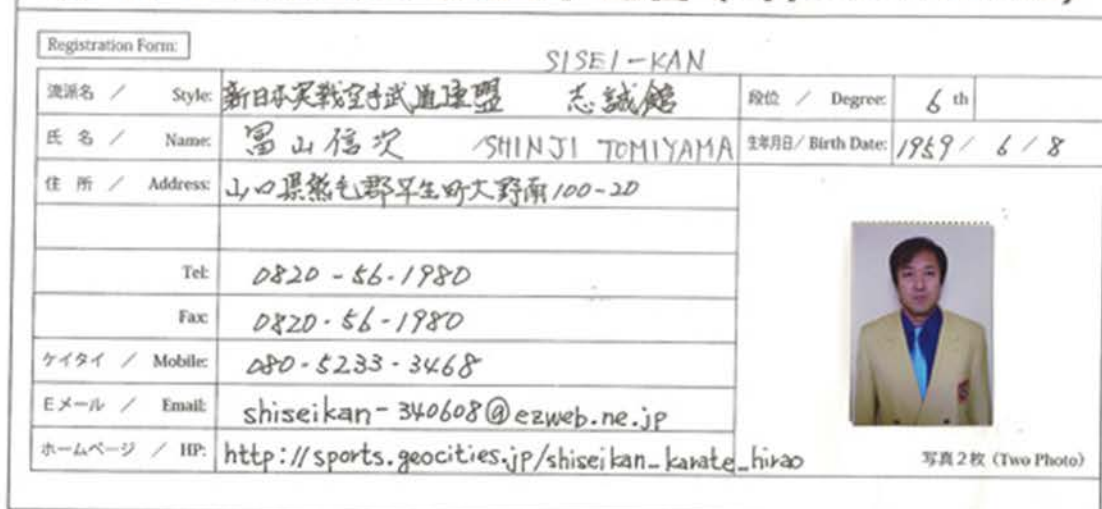 Registration Form:
SISEI-KAN
流派名 / Style: 新日本実戦空手武道連盟 志誠館 段位 / Degree: 6 th
氏 名 / Name: 冨山信次 SHINJI TOMIYAMA 生年月日/ Birth Date: 1959 / 6 / 8
住 所 / Address: 山口県熊毛郡平生町大野南100-20
Tel: 0820-56-1980
Fax: 0820-56-1980
ケイタイ / Mobile: 080-5233-3468
Eメール / Email: shiseikan-340608@ezweb.ne.jp
ホームページ / HP: http://sports.geocities.jp/shiseikan_karate_hirao
写真2枚 (Two Photo)